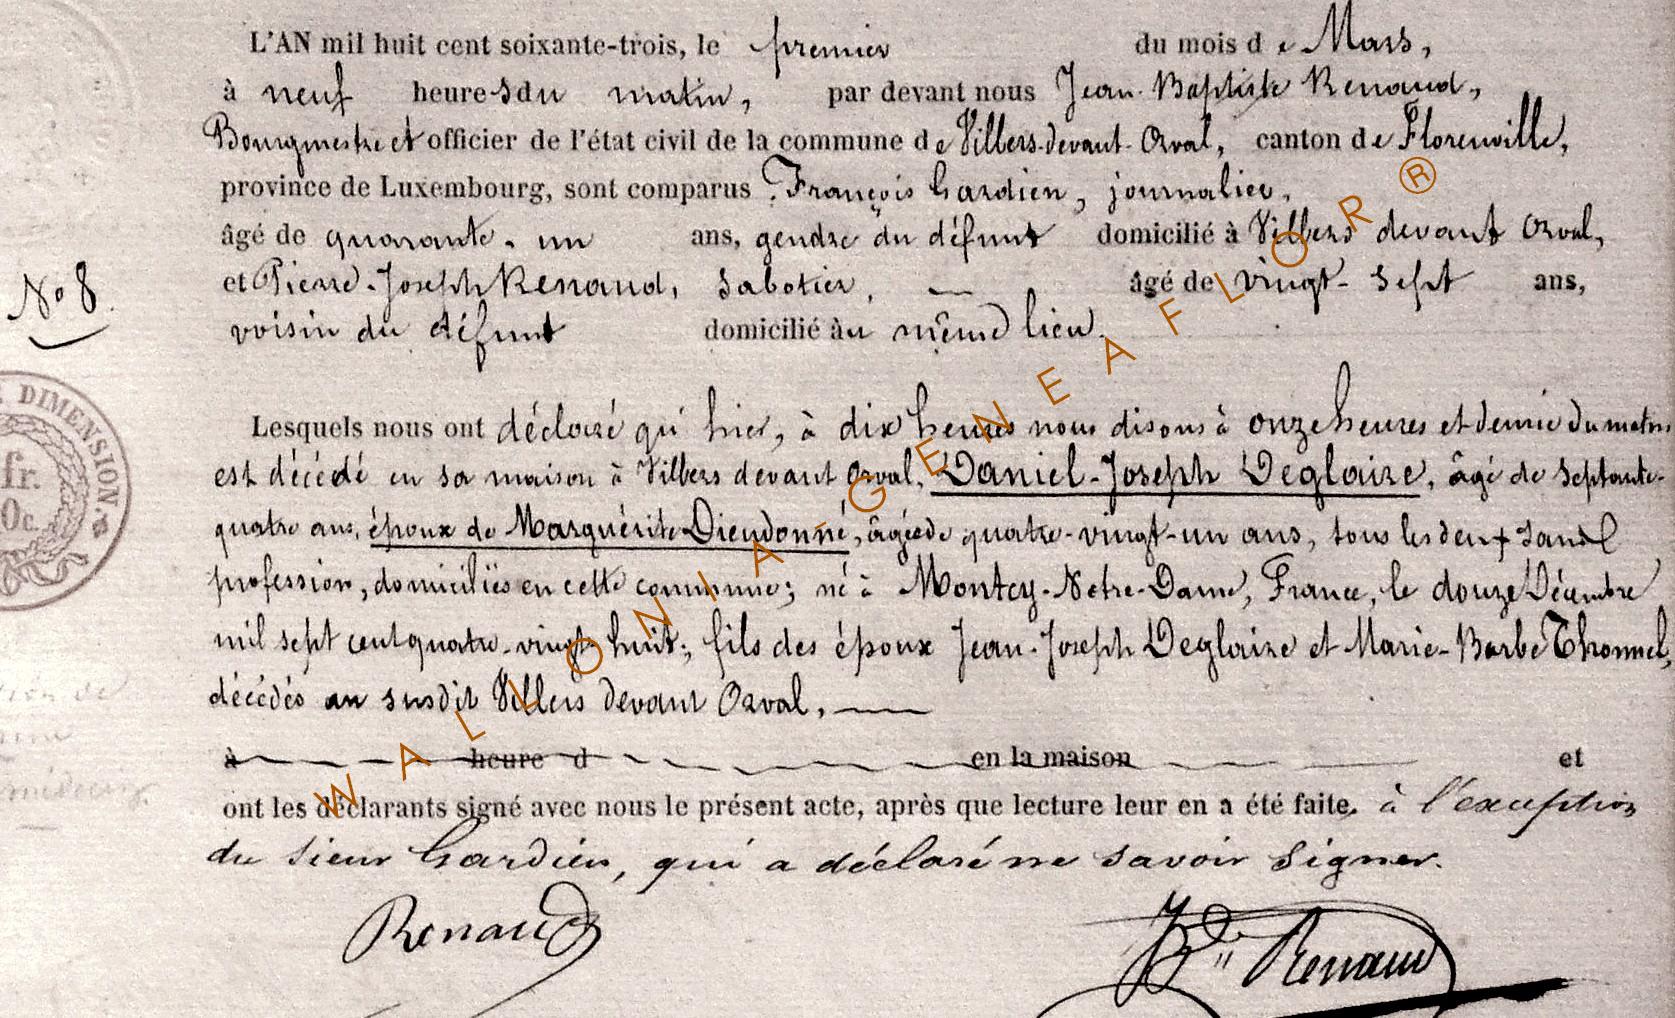 L'AN mil huit cent soixante-trois, le premier du mois de Mars,
à neuf heures du matin, par devant nous Jean-Baptiste Renaud,
Bourgmestre et officier de l'état civil de la commune de Villers-devant-Orval, canton de Florenville,
province de Luxembourg, sont comparus François Gardien, journalier,
âgé de quarante-un ans, gendre du défunt domicilié à Villers devant Orval,
et Pierre-Joseph Renaud, sabotier, âgé de vingt-sept ans,
No 8.
voisin du défunt domicilié au même lieu.
Lesquels nous ont déclaré qu'hier, à dix heures nous disons à onze heures et demie du matin
est décédé en sa maison à Villers devant Orval, Daniel-Joseph Deglaire, âgé de septante-
quatre ans, époux de Marguérite Dieudonné, âgée de quatre-vingt-un ans, tous les deux sans
profession, domiciliés en cette commune; né à Montcy-Notre-Dame, France, le douze Décembre
mil sept cent quatre-vingt huit; fils des époux Jean-Joseph Deglaire et Marie-Barbe Thonnel,
décédés au susdit Villers devant Orval,
à heure d en la maison et
ont les déclarants signé avec nous le présent acte, après que lecture leur en a été faite, à l'exception
du sieur Gardien, qui a déclaré ne savoir signer.
Renaud
Renaud
DIMENSION.
fr.
0c.
WALLONIA-GENEAFLOR ®